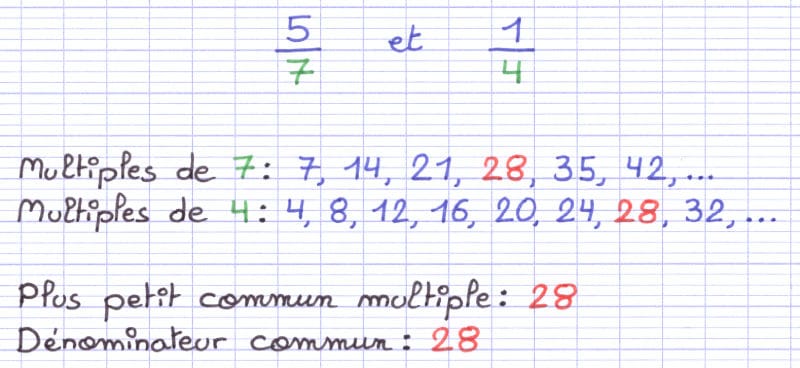 5/7 et 1/4
Multiples de 7 : 7, 14, 21, 28, 35, 42, ...
Multiples de 4 : 4, 8, 12, 16, 20, 24, 28, 32, ...
Plus petit commun multiple : 28
Dénominateur commun : 28